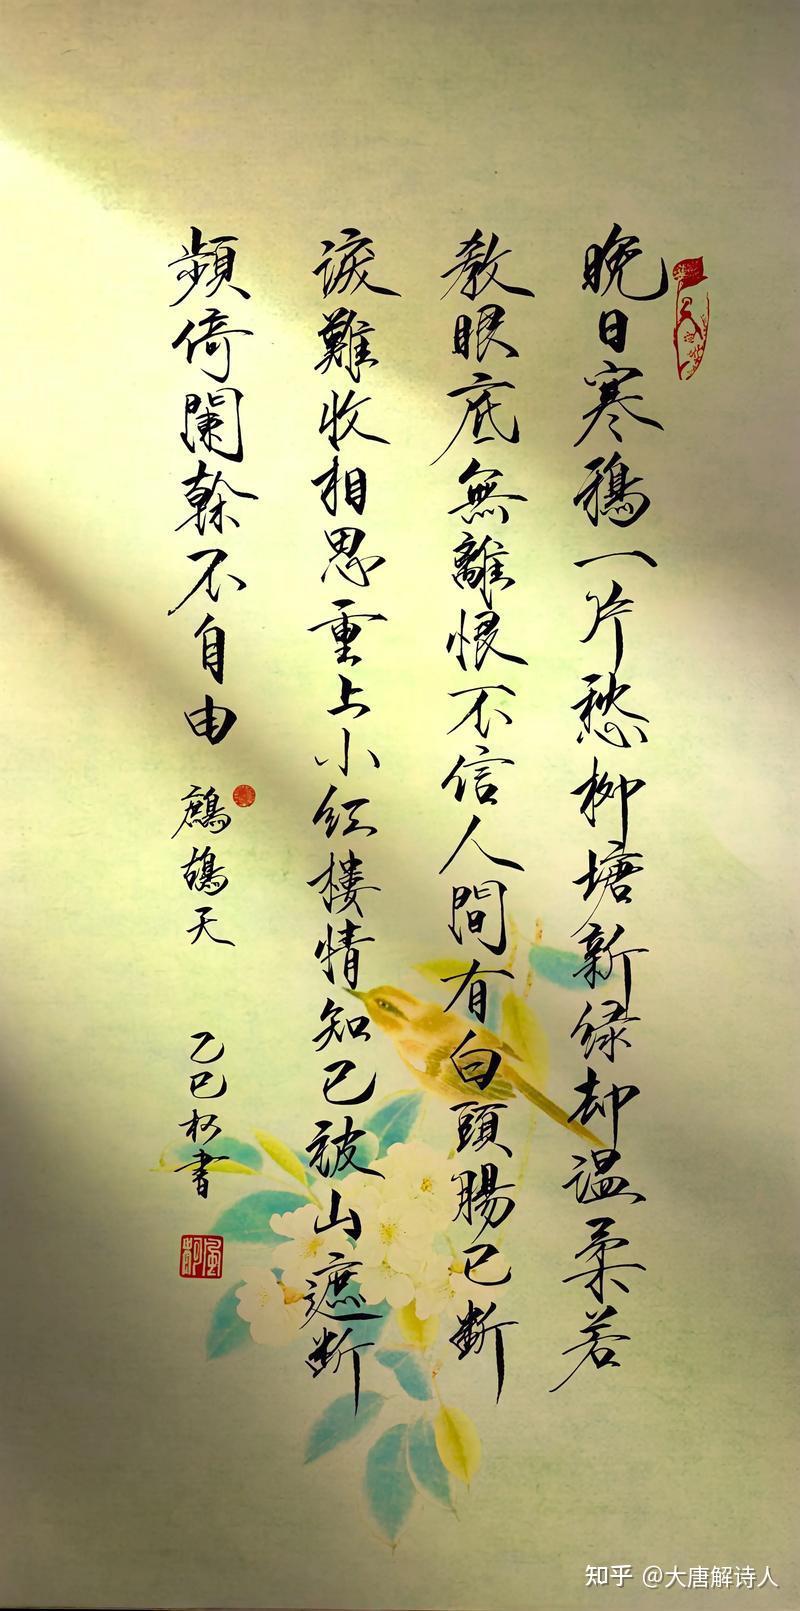 晚日寒鴉一片愁柳塘新綠却溫柔若
教眼底無離恨不信人間有白頭腸已斷
淚難收相思重上小紅樓情知已被山遮斷
頻倚闌榦不自由
鷓鴣天
乙巳 書
知乎 @大唐解诗人